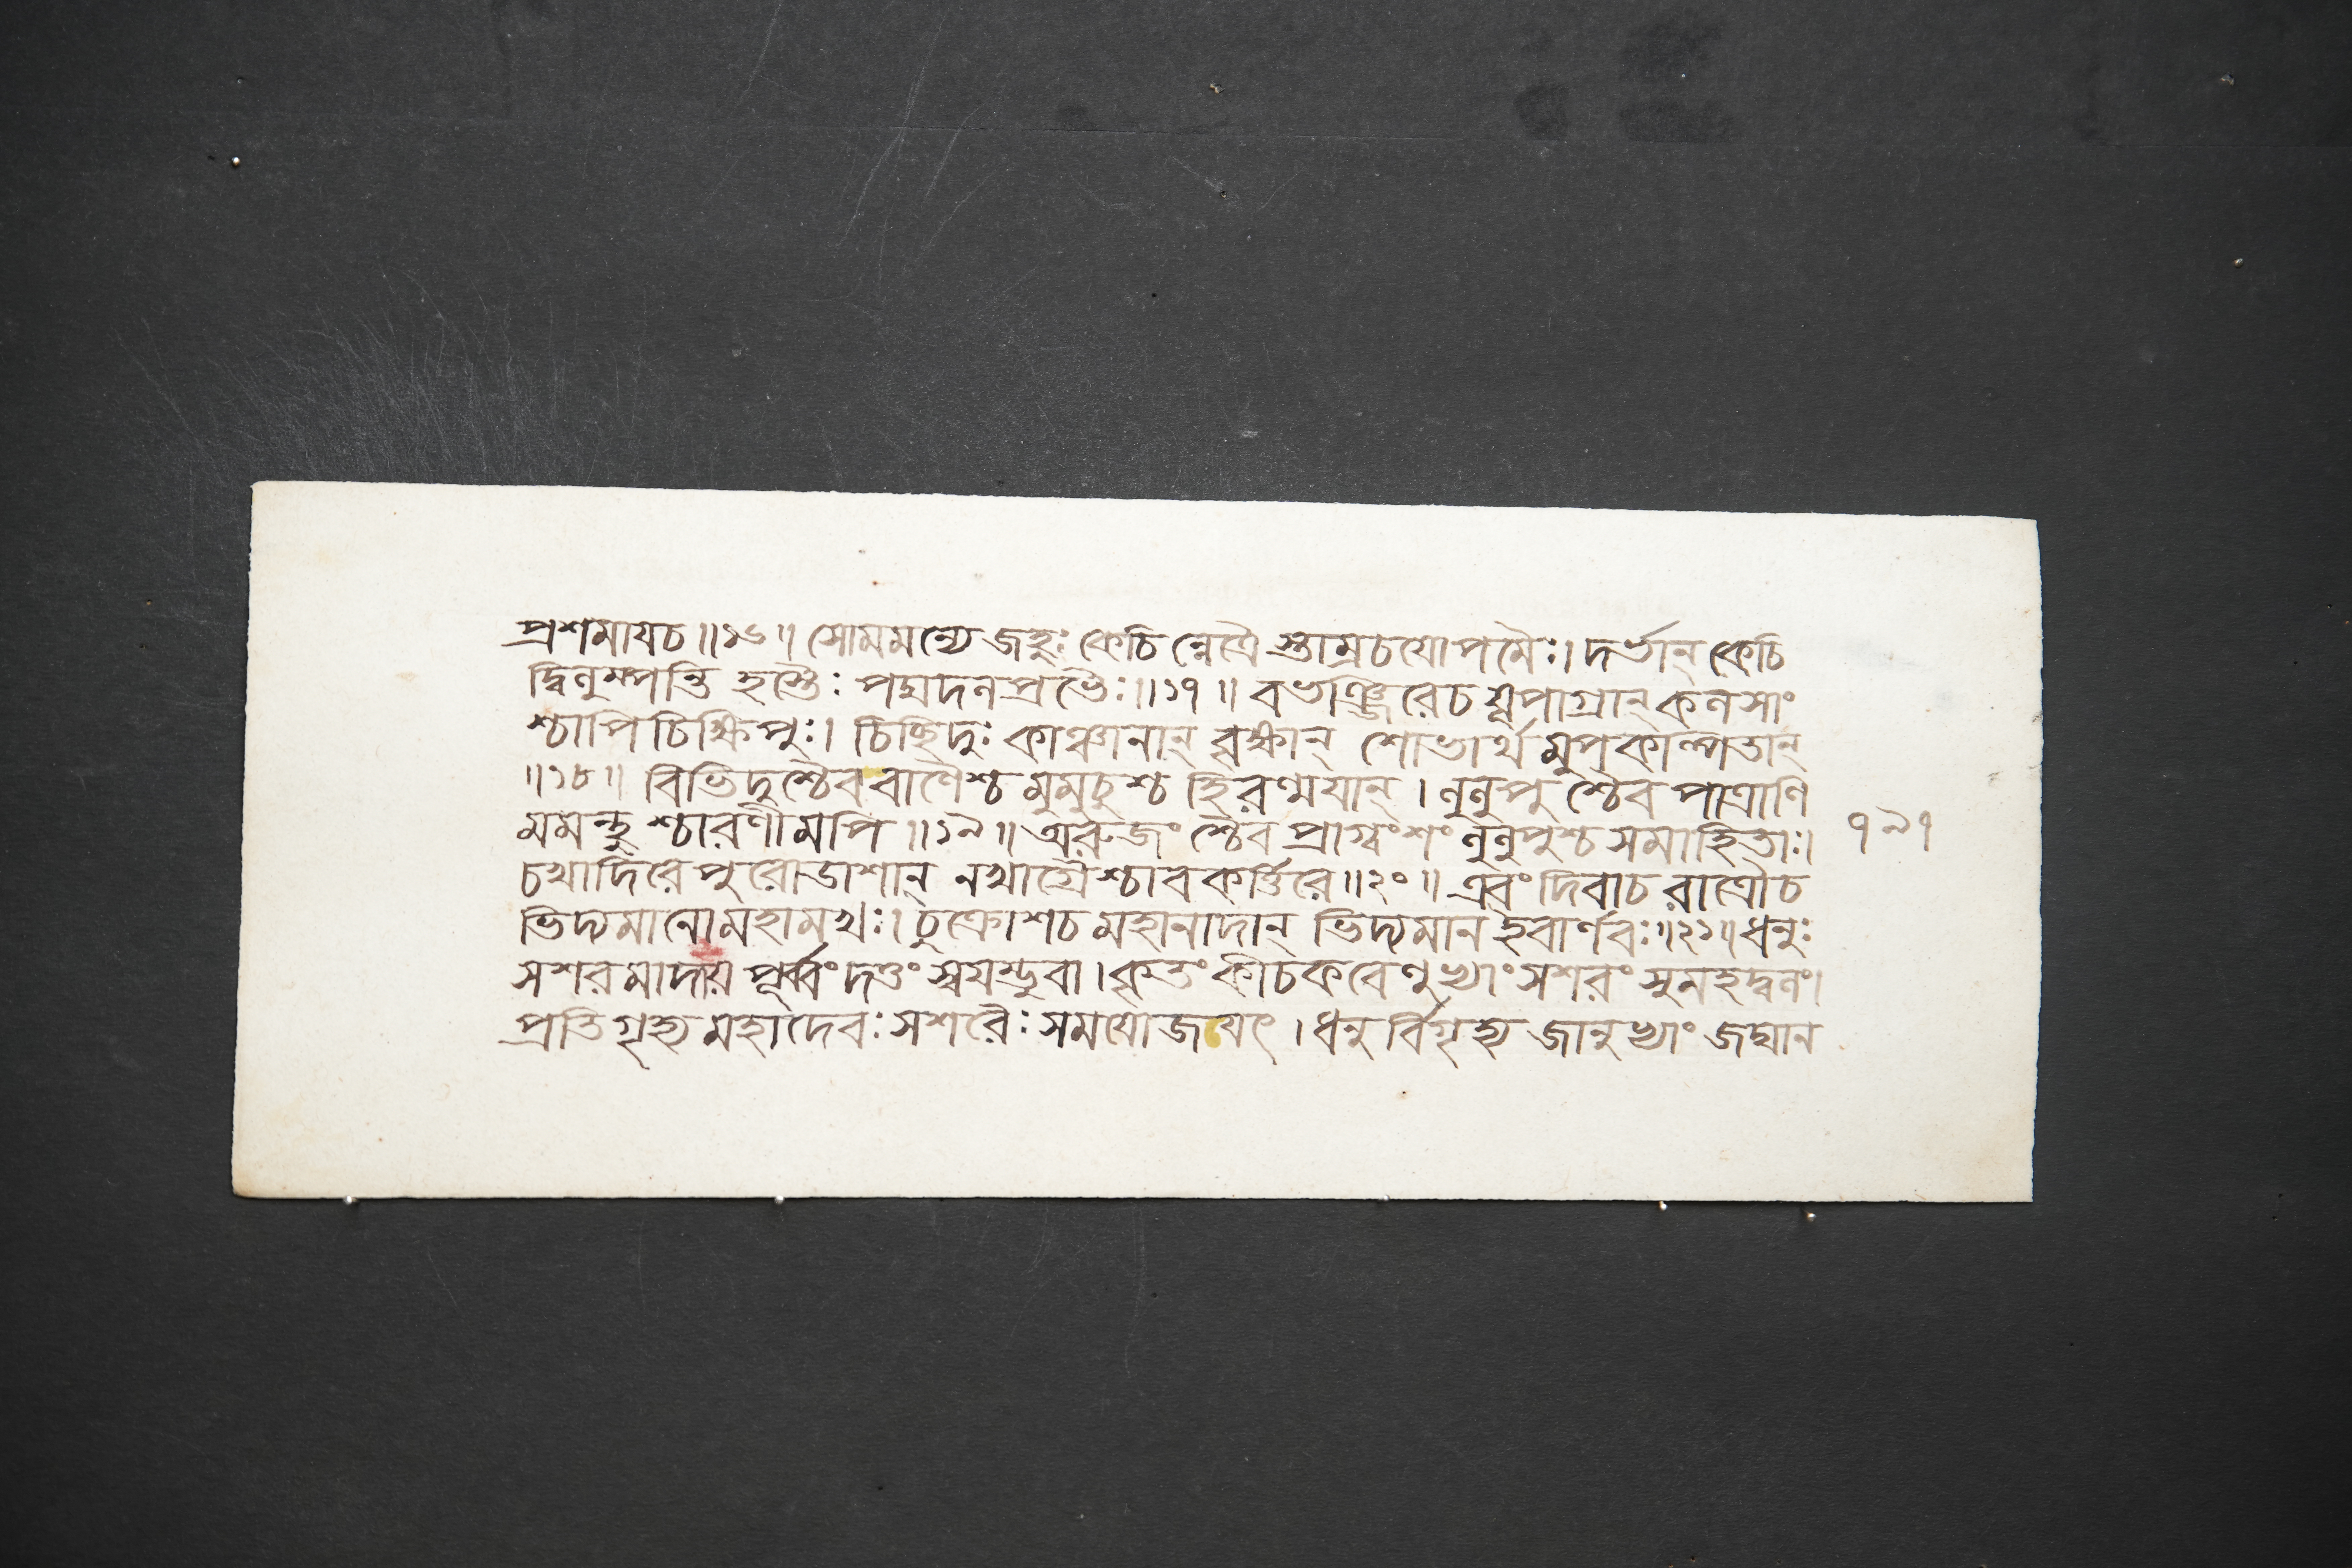 প্রশমাযচ॥১৬॥ সোমমন্যে জহ্রুঃ কেচি ন্নেত্রৈ স্তাম্রচযোপমৈঃ। দর্ভান্ কেচি
দ্বিলুম্পন্তি হস্তৈঃ পদ্মদলপ্রভৈঃ॥১৭॥ বভঞ্জিরেচ যূপাগ্রান্ কলসাং
শ্চাপি চিক্ষিপুঃ। চিচ্ছিদুঃ কাঞ্চনান্ বৃক্ষান্ শোভার্থ মুপকল্পিতান্
॥১৮॥ বিভিদুশ্চৈব বাণৈশ্চ মুমুচুশ্চ হিরণ্ময়ান্। লুলুপু শ্চৈব পাত্রাণি
মমন্থু শ্চারণীমপি॥১৯॥ অরুজং শ্চৈব প্রাগ্বংশং লুলুপুশ্চ সমাহিতাঃ।
৭৯৭
চখাদিরে পুরোডাশান্ নখাগ্রৈশ্চাবকর্ত্তিরে॥২০॥ এবং দিবাচ রাত্রৌচ
ভিদ্যমানোমহামখঃ। চুক্রোশচ মহানাদান্ ভিদ্যমান ইবার্ণবঃ॥২১॥ ধনুঃ
সশরমাদায় পূর্ব্বং দত্তং স্বযম্ভুবা। কৃতং কীচকবেণুভ্যাং সশরং সুমহদ্ধনং।
প্রতিগৃহ্য মহাদেবঃ সশরৈঃ সমযোজযৎ। ধনুর্বিগৃহ্য জানুভ্যাং জঘান